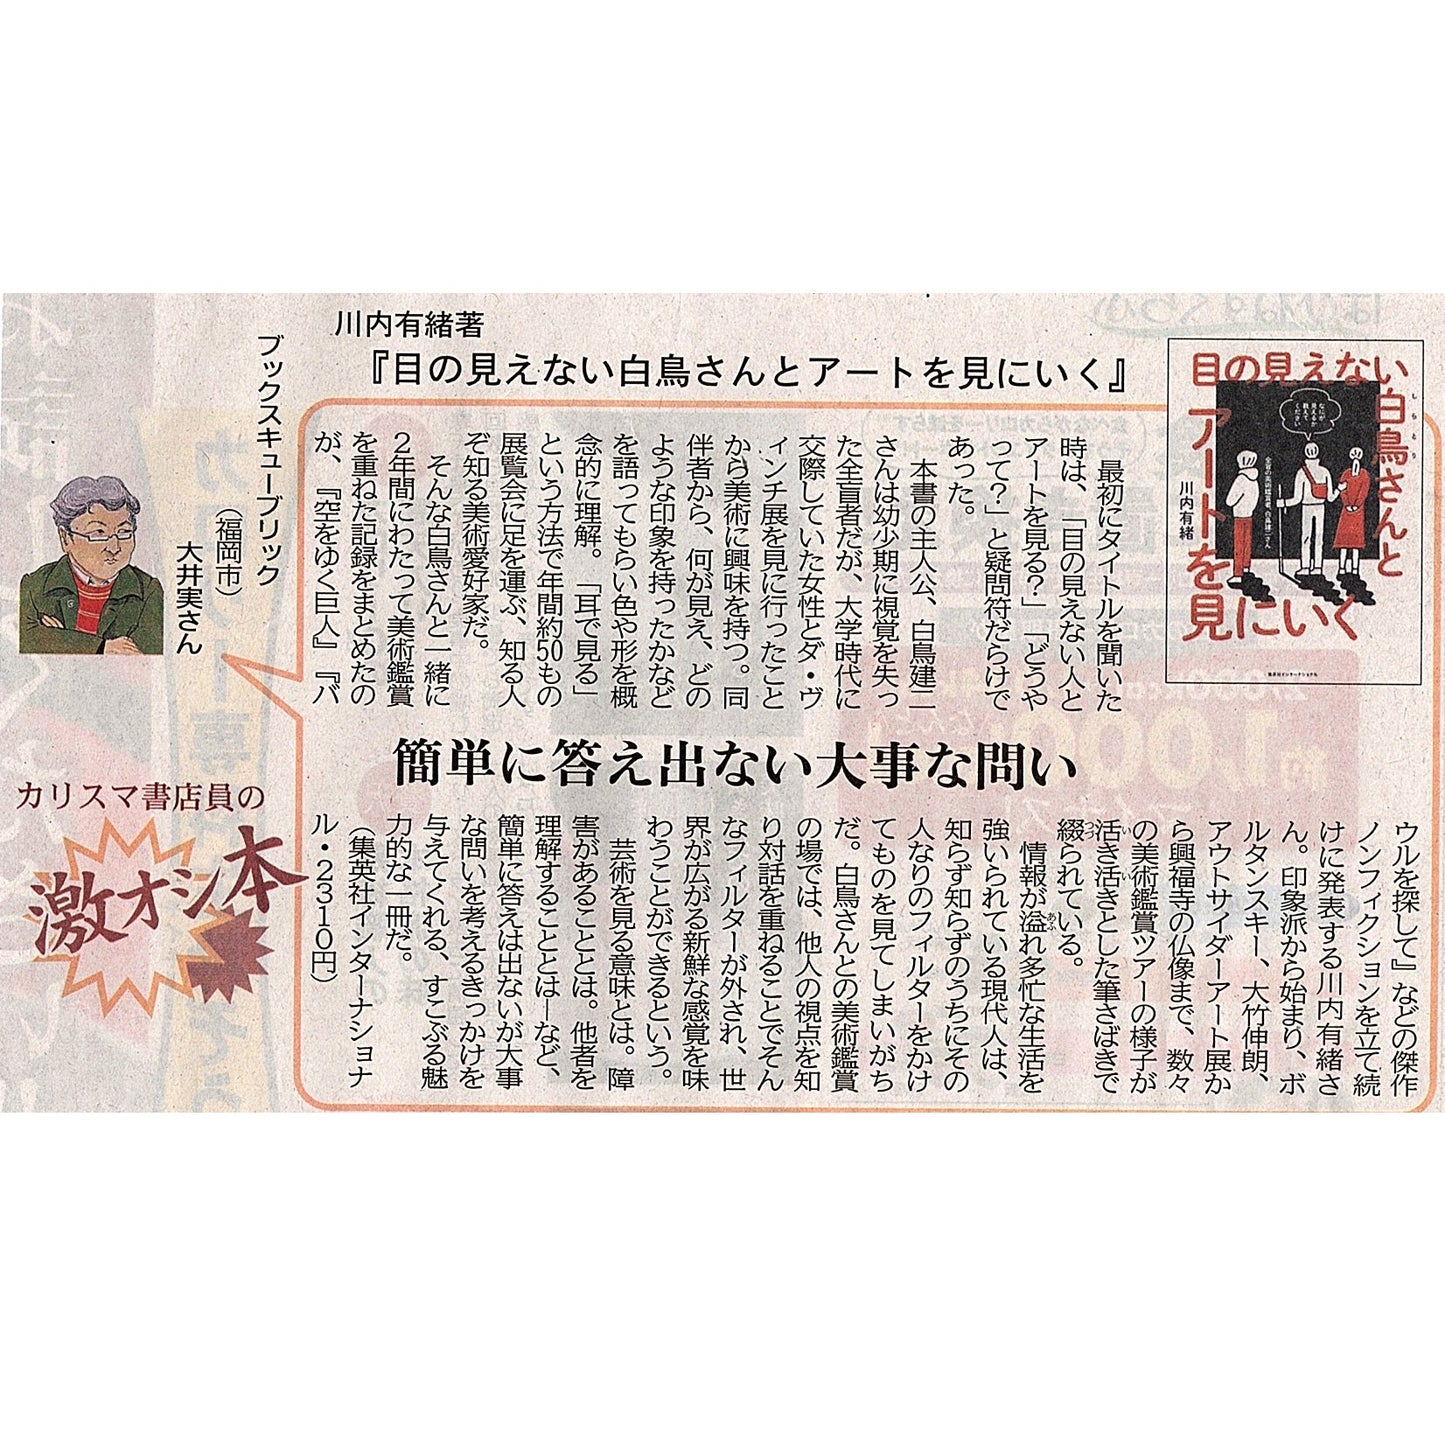 川内有緒著
『目の見えない白鳥さんとアートを見にいく』
目の見えない
白鳥さんと
しらとり
アートを
見にいく
なにが
見えるか
教えて
ください
全盲の美術鑑賞者、白鳥建二さん
川内有緒
集英社インターナショナル
最初にタイトルを聞いた
時は、「目の見えない人と
アートを見る？」「どうや
って？」と疑問符だらけで
あった。
本書の主人公、白鳥建二
さんは幼少期に視覚を失っ
た全盲者だが、大学時代に
交際していた女性とダ・ヴ
ィンチ展を見に行ったこと
から美術に興味を持つ。同
伴者から、何が見え、どの
ような印象を持ったかなど
を語ってもらい色や形を概
念的に理解。「耳で見る」
という方法で年間約50もの
展覧会に足を運ぶ、知る人
ぞ知る美術愛好家だ。
そんな白鳥さんと一緒に
２年間にわたって美術鑑賞
を重ねた記録をまとめたの
が、『空をゆく巨人』『バ
簡単に答え出ない大事な問い
ウルを探して』などの傑作
ノンフィクションを立て続
けに発表する川内有緒さ
ん。印象派から始まり、ボ
ルタンスキー、大竹伸朗、
アウトサイダーアート展か
ら興福寺の仏像まで、数々
の美術鑑賞ツアーの様子が
活き活きとした筆さばきで
い　い
綴られている。
つづ
情報が溢れ多忙な生活を
あふ
強いられている現代人は、
知らず知らずのうちにその
人なりのフィルターをかけ
てものを見てしまいがち
だ。白鳥さんとの美術鑑賞
の場では、他人の視点を知
り対話を重ねることでそん
なフィルターが外され、世
界が広がる新鮮な感覚を味
わうことができるという。
芸術を見る意味とは。障
害があることとは。他者を
理解することとは―など、
簡単に答えは出ないが大事
な問いを考えるきっかけを
与えてくれる、すこぶる魅
力的な一冊だ。
（集英社インターナショナ
ル・２３１０円）
ブックスキューブリック
（福岡市）
大井実さん
カリスマ書店員の
激オシ本